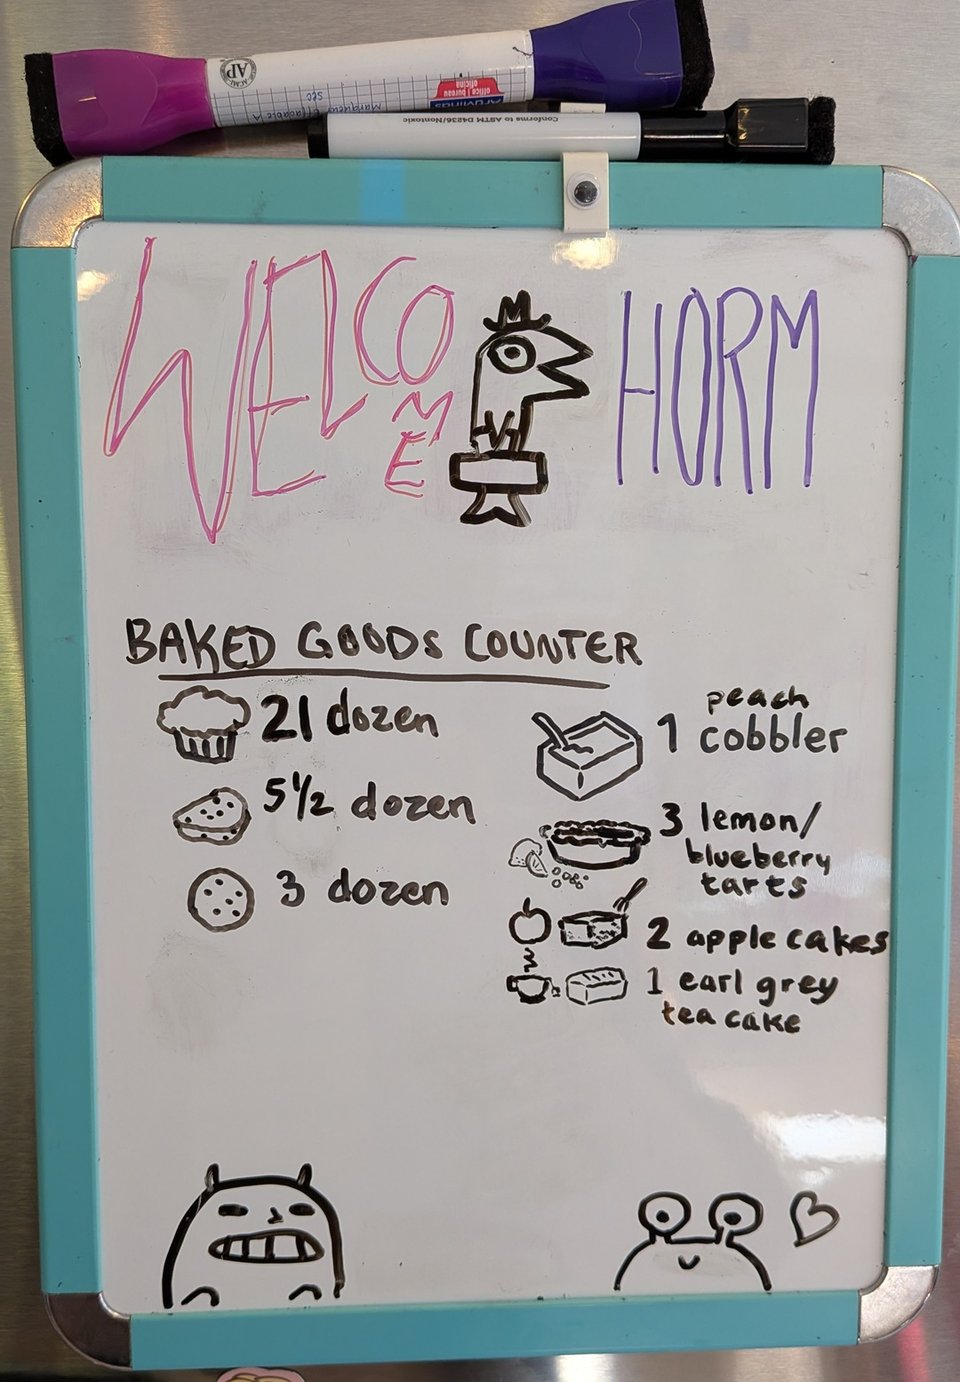 AP
ACMI
Marqueurs
Effaçable À
sec
office | bureau
oficina
Conforms to ASTM D4236/Nontoxic
WELCOME
HORM
BAKED GOODS COUNTER
21 dozen
5 1/2 dozen
3 dozen
1 peach
cobbler
3 lemon/
blueberry
tarts
2 apple cakes
1 earl grey
tea cake